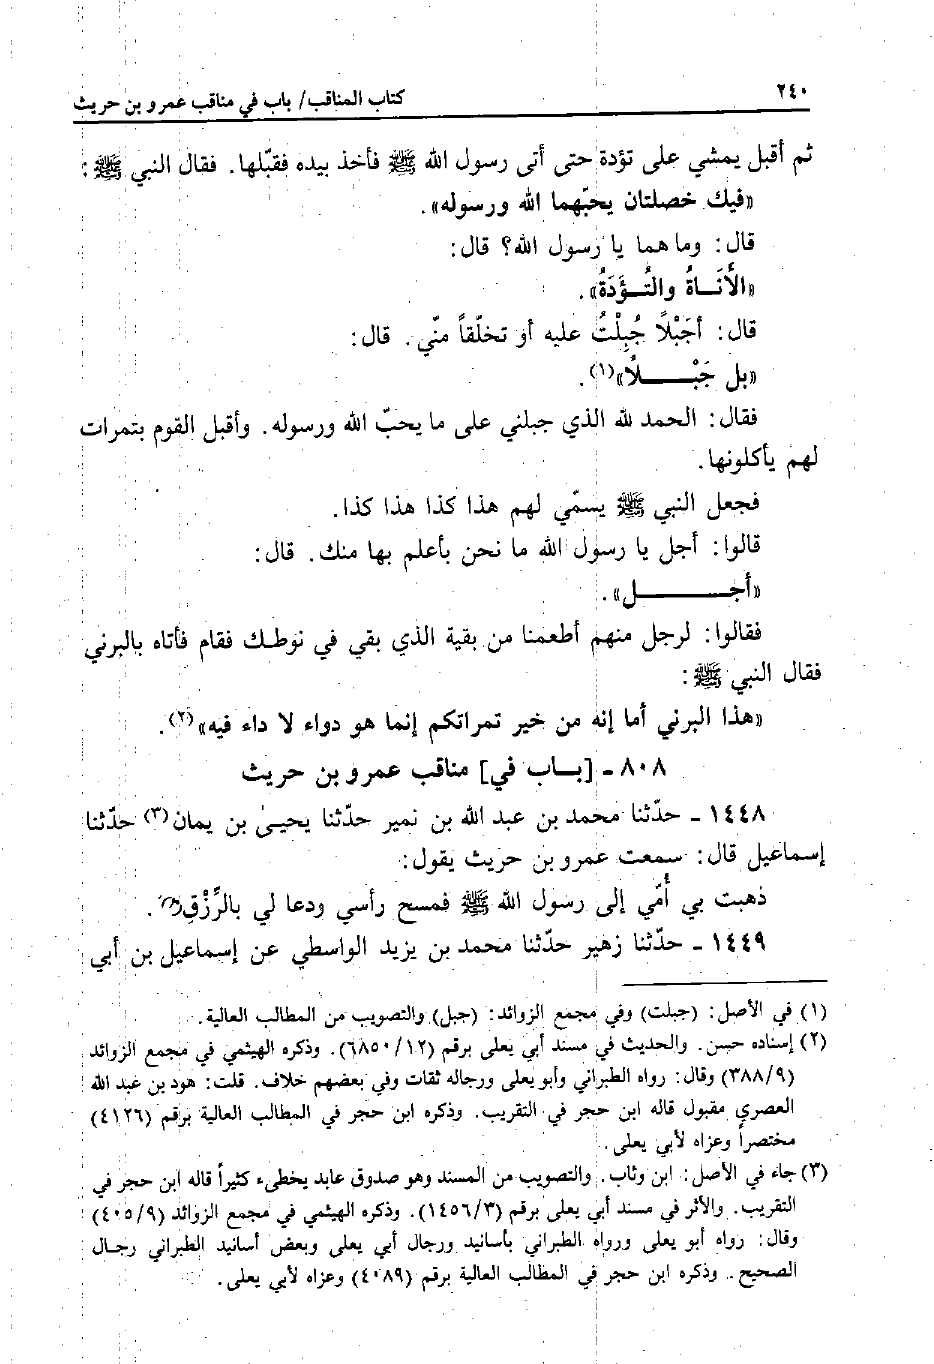 ٢٤٠
كتاب المناقب/ باب في مناقب عمرو بن حريث
ثم أقبل يمشي على تؤدة حتى أتى رسول الله ﷺ فأخذ بيده فقبّلها. فقال النبي ﷺ:
«فيك خصلتان يحبّهما الله ورسوله».
قال: وما هما يا رسول الله؟ قال:
«الأَنَاةُ والتُؤَدَةُ».
قال: أجَبْلاً جُبِلْتُ عليه أو تخلّقاً منّي. قال:
«بل جَبْلاً»(١).
فقال: الحمد لله الذي جبلني على ما يحبّ الله ورسوله. وأقبل القوم بتمرات
لهم يأكلونها.
فجعل النبي ﷺ يسمّي لهم هذا كذا هذا كذا.
قالوا: أجل يا رسول الله ما نحن بأعلم بها منك. قال:
«أجل».
فقالوا: لرجل منهم أطعمنا من بقية الذي بقي في نوطك فقام فأتاه بالبرني
فقال النبي ﷺ:
«هذا البرني أما إنه من خير تمراتكم إنما هو دواء لا داء فيه»(٢).
٨٠٨ - [باب في] مناقب عمرو بن حريث
١٤٤٨ - حدّثنا محمد بن عبد الله بن نمير حدّثنا يحيىٰ بن يمان(٣) حدّثنا
إسماعيل قال: سمعت عمرو بن حريث يقول:
ذهبت بي أُمّي إلى رسول الله ﷺ فمسح رأسي ودعا لي بالرِّزْقِ.
١٤٤٩ - حدّثنا زهير حدّثنا محمد بن يزيد الواسطي عن إسماعيل بن أبي
(١) في الأصل: (جبلت) وفي مجمع الزوائد: (جبل) والتصويب من المطالب العالية.
(٢) إسناده حسن. والحديث في مسند أبي يعلى برقم (٦٨٥٠/١٢). وذكره الهيثمي في مجمع الزوائد
(٣٨٨/٩) وقال: رواه الطبراني وأبو يعلى ورجاله ثقات وفي بعضهم خلاف. قلت: هود بن عبد الله
العصري مقبول قاله ابن حجر في التقريب. وذكره ابن حجر في المطالب العالية برقم (٤١٢٦)
مختصراً وعزاه لأبي يعلى.
(٣) جاء في الأصل: ابن وثاب. والتصويب من المسند وهو صدوق عابد يخطىء كثيراً قاله ابن حجر في
التقريب. والأثر في مسند أبي يعلى برقم (١٤٥٦/٣). وذكره الهيثمي في مجمع الزوائد (٤٠٥/٩)
وقال: رواه أبو يعلى ورواه الطبراني بأسانيد ورجال أبي يعلى وبعض أسانيد الطبراني رجال
الصحيح. وذكره ابن حجر في المطالب العالية برقم (٤٠٨٩) وعزاه لأبي يعلى.